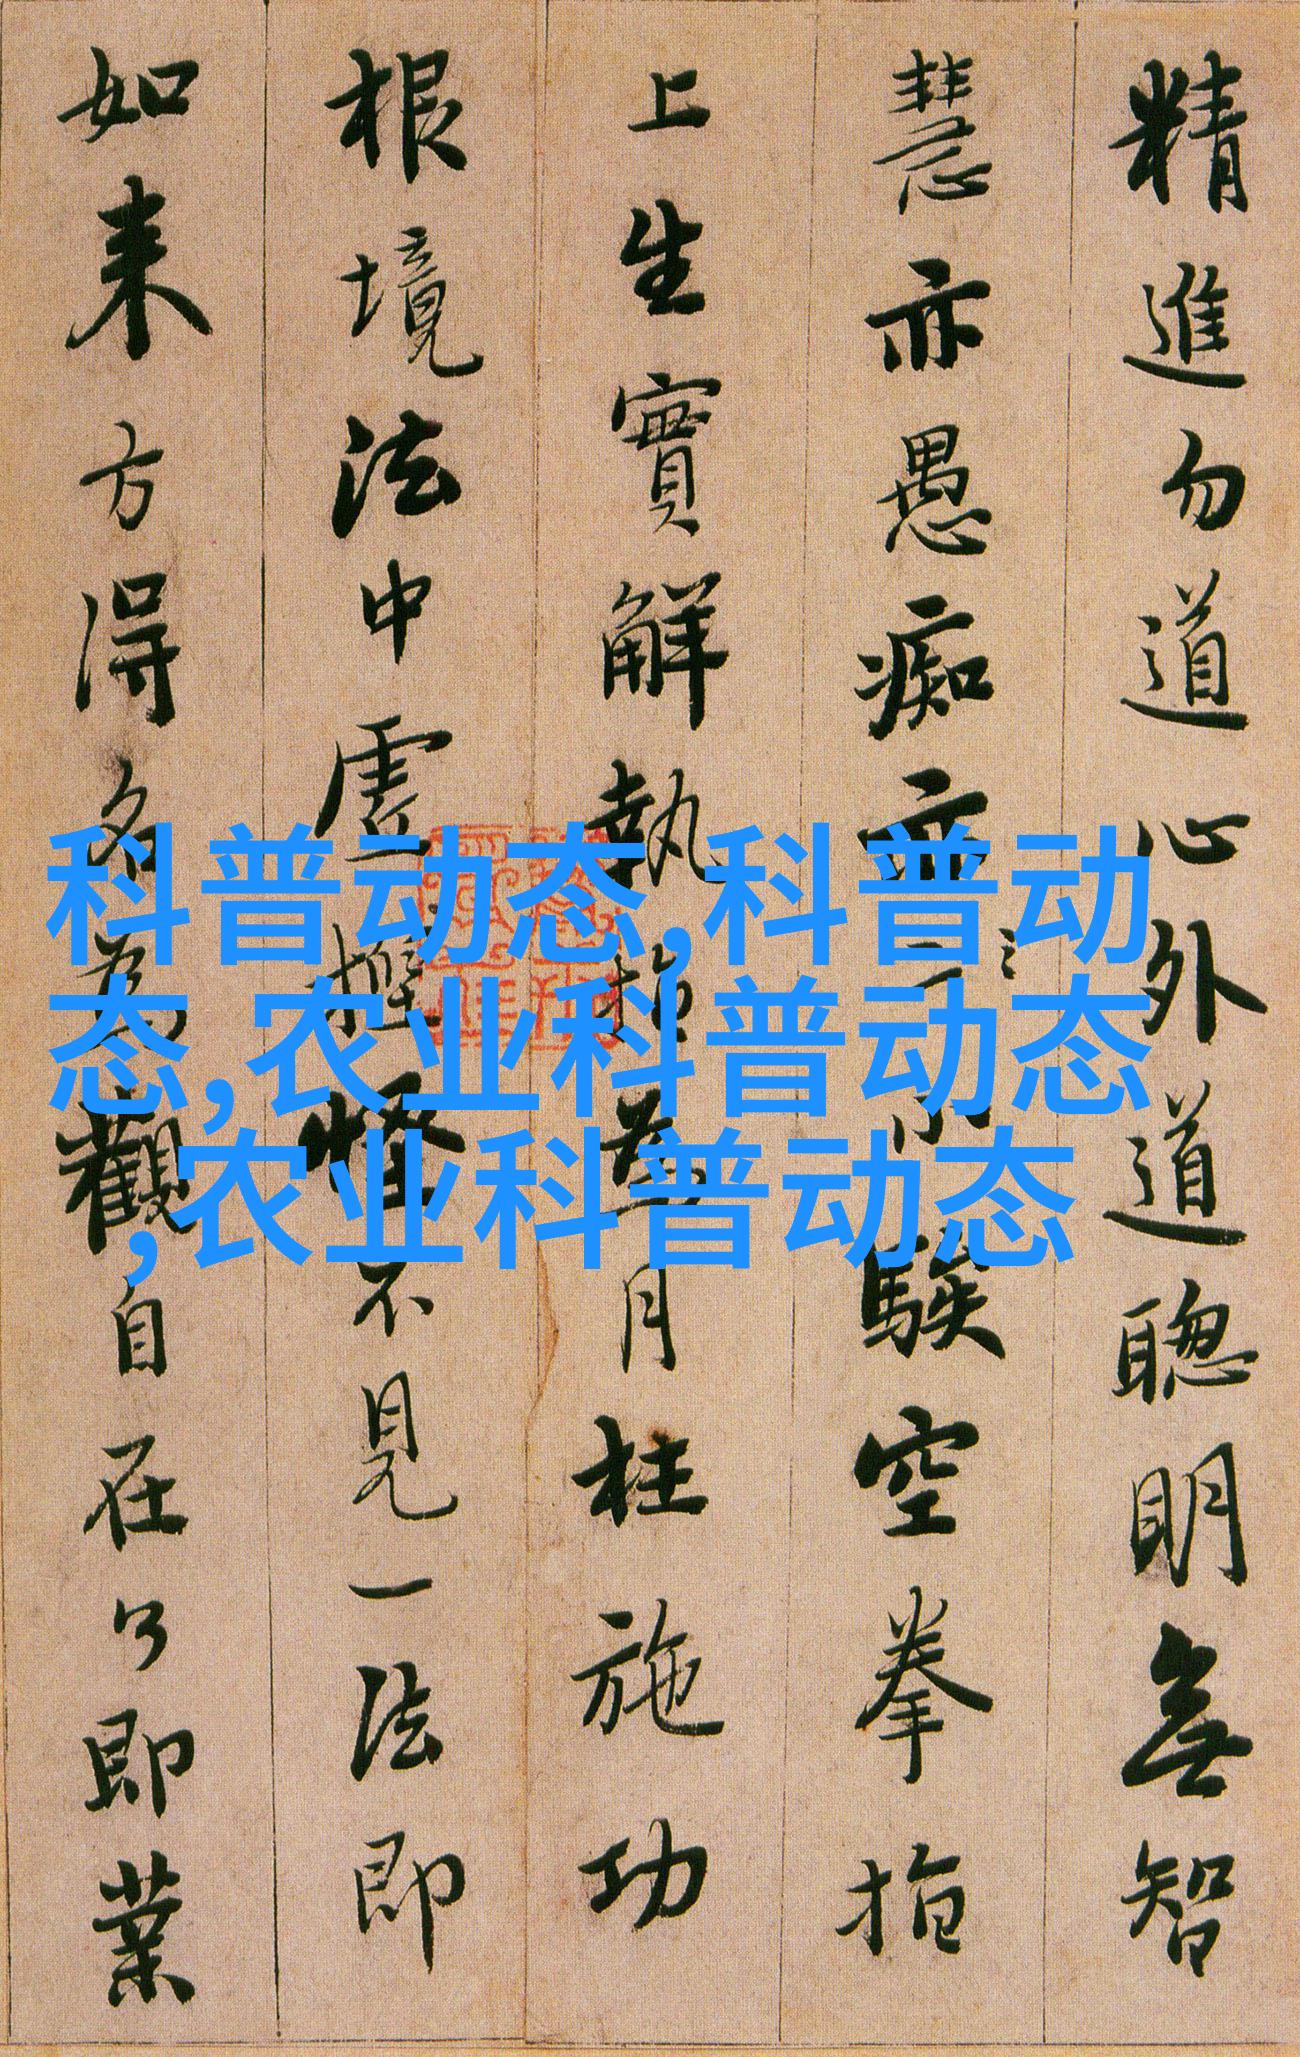 精進勿道心外道聰明無智
慧亦愚痴亦小騃空拳指
上生實解執指為月枉施功
根境法中虛捏怪不見一法即
如来方得名為觀自在了即業
科普动态,科普动
态,农业科普动态
,农业科普动态